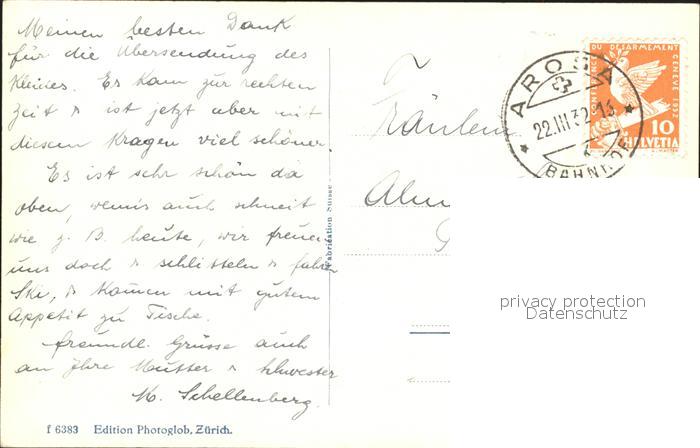 Meinen besten Dank
für die Übersendung des
Kleides. Es kam zur rechten
Zeit & ist jetzt aber mit
diesem Kragen viel schöner.
Es ist sehr schön da
oben, wenns auch schneit
wie z. B. heute, wir freuen
uns doch & schlitteln & fahren
Ski, & kommen mit gutem
Appetit zu Tische.
freundl. Grüsse auch
an Ihre Mutter & Schwester
M. Schellenberg.
f 6383 Edition Photoglob, Zürich.
Fabrication Suisse
Fräulein
AROSA
22.III.32
BAHNHOF
DU DESARMEMENT
GENEVE 1932
10
HELVETIA
privacy protection
Datenschutz